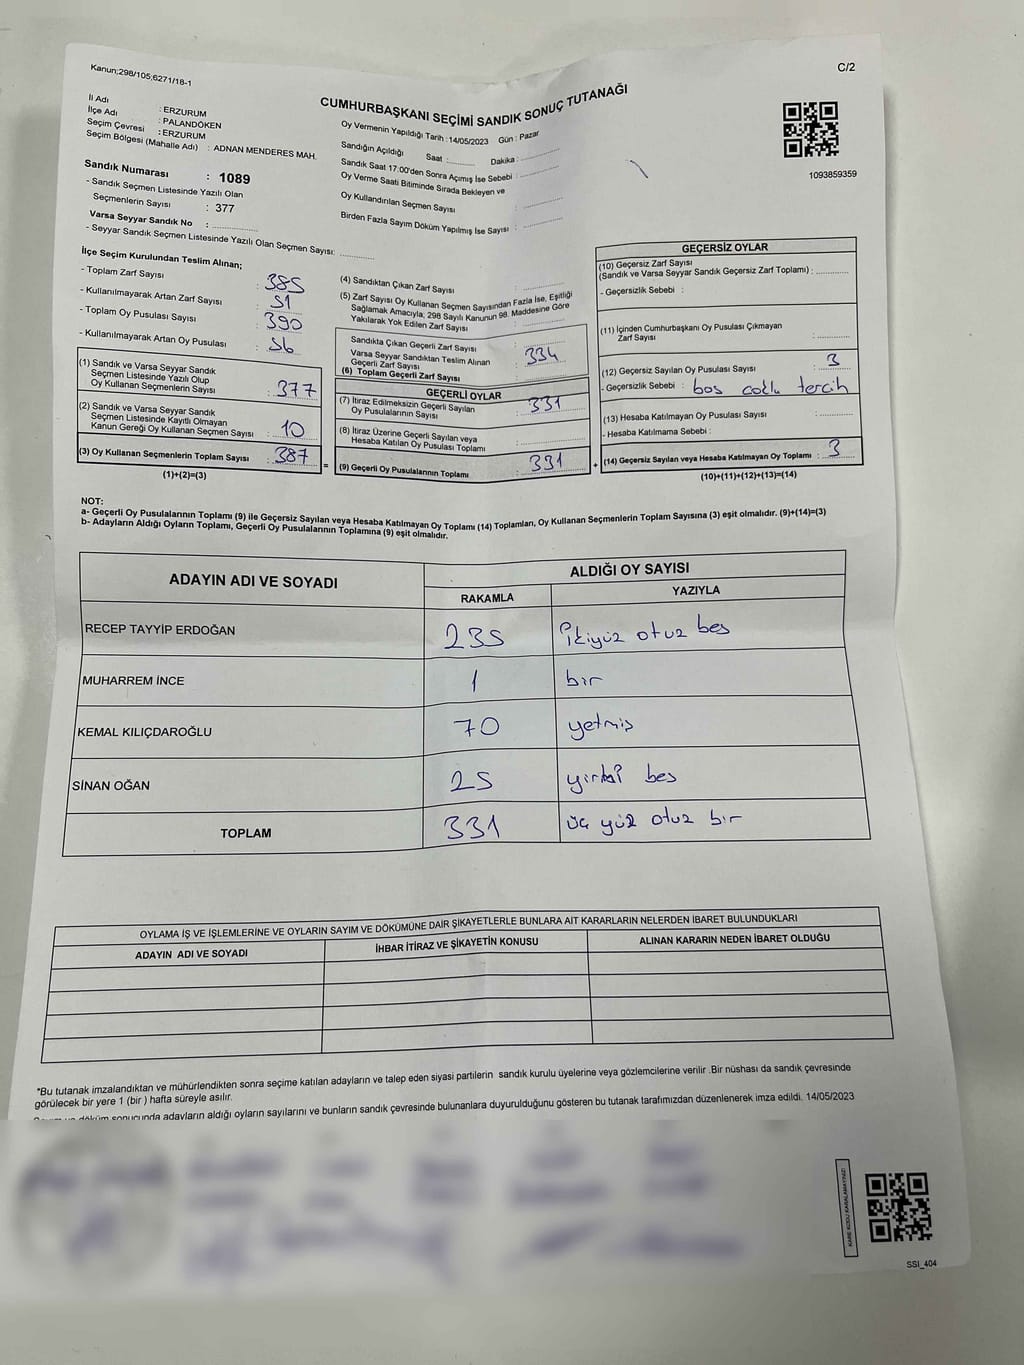 Kanun;298/105;6271/18-1
C/2
CUMHURBAŞKANI SEÇİMİ SANDIK SONUÇ TUTANAĞI
İl Adı : ERZURUM
İlçe Adı : PALANDÖKEN
Seçim Çevresi : ERZURUM
Seçim Bölgesi (Mahalle Adı) : ADNAN MENDERES MAH.
Sandık Numarası : 1089
- Sandık Seçmen Listesinde Yazılı Olan
Seçmenlerin Sayısı : 377
Varsa Seyyar Sandık No :
- Seyyar Sandık Seçmen Listesinde Yazılı Olan Seçmen Sayısı:
Oy Vermenin Yapıldığı Tarih :14/05/2023 Gün : Pazar
Sandığın Açıldığı Saat : Dakika :
Sandık Saat 17:00'den Sonra Açımış İse Sebebi :
Oy Verme Saati Bitiminde Sırada Bekleyen ve
Oy Kullandırılan Seçmen Sayısı :
Birden Fazla Sayım Döküm Yapılmış İse Sayısı :
1093859359
İlçe Seçim Kurulundan Teslim Alınan;
- Toplam Zarf Sayısı : 385
- Kullanılmayarak Artan Zarf Sayısı : 51
- Toplam Oy Pusulası Sayısı : 390
- Kullanılmayarak Artan Oy Pusulası : 56
(1) Sandık ve Varsa Seyyar Sandık
Seçmen Listesinde Yazılı Olup
Oy Kullanan Seçmenlerin Sayısı : 377
(2) Sandık ve Varsa Seyyar Sandık
Seçmen Listesinde Kayıtlı Olmayan
Kanun Gereği Oy Kullanan Seçmen Sayısı : 10
(3) Oy Kullanan Seçmenlerin Toplam Sayısı : 387
(1)+(2)=(3)
(4) Sandıktan Çıkan Zarf Sayısı :
(5) Zarf Sayısı Oy Kullanan Seçmen Sayısından Fazla İse, Eşitliği
Sağlamak Amacıyla; 298 Sayılı Kanunun 98. Maddesine Göre
Yakılarak Yok Edilen Zarf Sayısı :
Sandıkta Çıkan Geçerli Zarf Sayısı
Varsa Seyyar Sandıktan Teslim Alınan
Geçerli Zarf Sayısı : 334
(6) Toplam Geçerli Zarf Sayısı :
GEÇERLİ OYLAR
(7) İtiraz Edilmeksizin Geçerli Sayılan
Oy Pusulalarının Sayısı : 331
(8) İtiraz Üzerine Geçerli Sayılan veya
Hesaba Katılan Oy Pusulası Toplamı :
= (9) Geçerli Oy Pusulalarının Toplamı : 331 +
GEÇERSİZ OYLAR
(10) Geçersiz Zarf Sayısı
(Sandık ve Varsa Seyyar Sandık Geçersiz Zarf Toplamı) :
- Geçersizlik Sebebi :
(11) İçinden Cumhurbaşkanı Oy Pusulası Çıkmayan
Zarf Sayısı :
(12) Geçersiz Sayılan Oy Pusulası Sayısı : 3
- Geçersizlik Sebebi : boş çoklu tercih
(13) Hesaba Katılmayan Oy Pusulası Sayısı :
- Hesaba Katılmama Sebebi :
(14) Geçersiz Sayılan veya Hesaba Katılmayan Oy Toplamı : 3
(10)+(11)+(12)+(13)=(14)
NOT:
a- Geçerli Oy Pusulalarının Toplamı (9) ile Geçersiz Sayılan veya Hesaba Katılmayan Oy Toplamı (14) Toplamları, Oy Kullanan Seçmenlerin Toplam Sayısına (3) eşit olmalıdır. (9)+(14)=(3)
b- Adayların Aldığı Oyların Toplamı, Geçerli Oy Pusulalarının Toplamına (9) eşit olmalıdır.
ADAYIN ADI VE SOYADI
ALDIĞI OY SAYISI
RAKAMLA YAZIYLA
RECEP TAYYİP ERDOĞAN 235 ikiyüz otuz beş
MUHARREM İNCE 1 bir
KEMAL KILIÇDAROĞLU 70 yetmiş
SİNAN OĞAN 25 yirmi beş
TOPLAM 331 üç yüz otuz bir
OYLAMA İŞ VE İŞLEMLERİNE VE OYLARIN SAYIM VE DÖKÜMÜNE DAİR ŞİKAYETLERLE BUNLARA AİT KARARLARIN NELERDEN İBARET BULUNDUKLARI
ADAYIN ADI VE SOYADI İHBAR İTİRAZ VE ŞİKAYETİN KONUSU ALINAN KARARIN NEDEN İBARET OLDUĞU
*Bu tutanak imzalandıktan ve mühürlendikten sonra seçime katılan adayların ve talep eden siyasi partilerin sandık kurulu üyelerine veya gözlemcilerine verilir .Bir nüshası da sandık çevresinde
görülecek bir yere 1 (bir ) hafta süreyle asılır.
döküm sonucunda adayların aldığı oyların sayılarını ve bunların sandık çevresinde bulunanlara duyurulduğunu gösteren bu tutanak tarafımızdan düzenlenerek imza edildi. 14/05/2023
KARE KODU KARALAMAYINIZ!
SSI_404